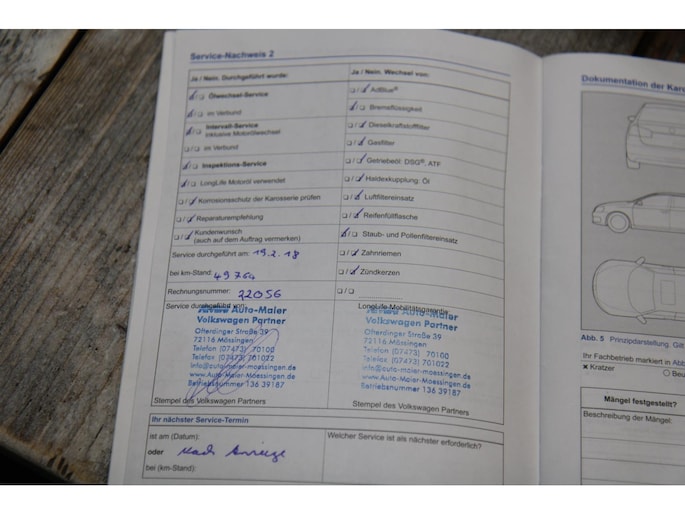 Service-Nachweis 2
Ja / Nein. Durchgeführt wurde:
Ölwechsel-Service
im Verbund
Intervall-Service
inklusive Motorölwechsel
im Verbund
Inspektions-Service
LongLife Motoröl verwendet
Korrosionsschutz der Karosserie prüfen
Reparaturempfehlung
Kundenwunsch
(auch auf dem Auftrag vermerken)
Service durchgeführt am: 19.2.18
bei km-Stand: 49764
Rechnungsnummer: 22056
Service durchgeführt von:
Auto-Maier
Volkswagen Partner
Ofterdinger Straße 39
72116 Mössingen
Telefon (07473) 70100
Telefax (07473) 701022
info@auto-maier-moessingen.de
www.Auto-Maier-Moessingen.de
Betriebsnummer 136 39187
Stempel des Volkswagen Partners
Ja / Nein. Wechsel von:
AdBlue®
Bremsflüssigkeit
Dieselkraftstofffilter
Gasfilter
Getriebeöl: DSG®, ATF
Haldexkupplung: Öl
Luftfiltereinsatz
Reifenfüllflasche
Staub- und Pollenfiltereinsatz
Zahnriemen
Zündkerzen
LongLife-Mobilitätsgarantie:
Auto-Maier
Volkswagen Partner
Ofterdinger Straße 39
72116 Mössingen
Telefon (07473) 70100
Telefax (07473) 701022
info@auto-maier-moessingen.de
www.Auto-Maier-Moessingen.de
Betriebsnummer 136 39187
Stempel des Volkswagen Partners
Ihr nächster Service-Termin
ist am (Datum):
oder Nach Anzeige
bei (km-Stand):
Welcher Service ist als nächster erforderlich?
Dokumentation der Karos
Abb. 5 Prinzipdarstellung. Gilt
Ihr Fachbetrieb markiert in Abb.
× Kratzer
Beu
Mängel festgestellt?
Beschreibung der Mängel: